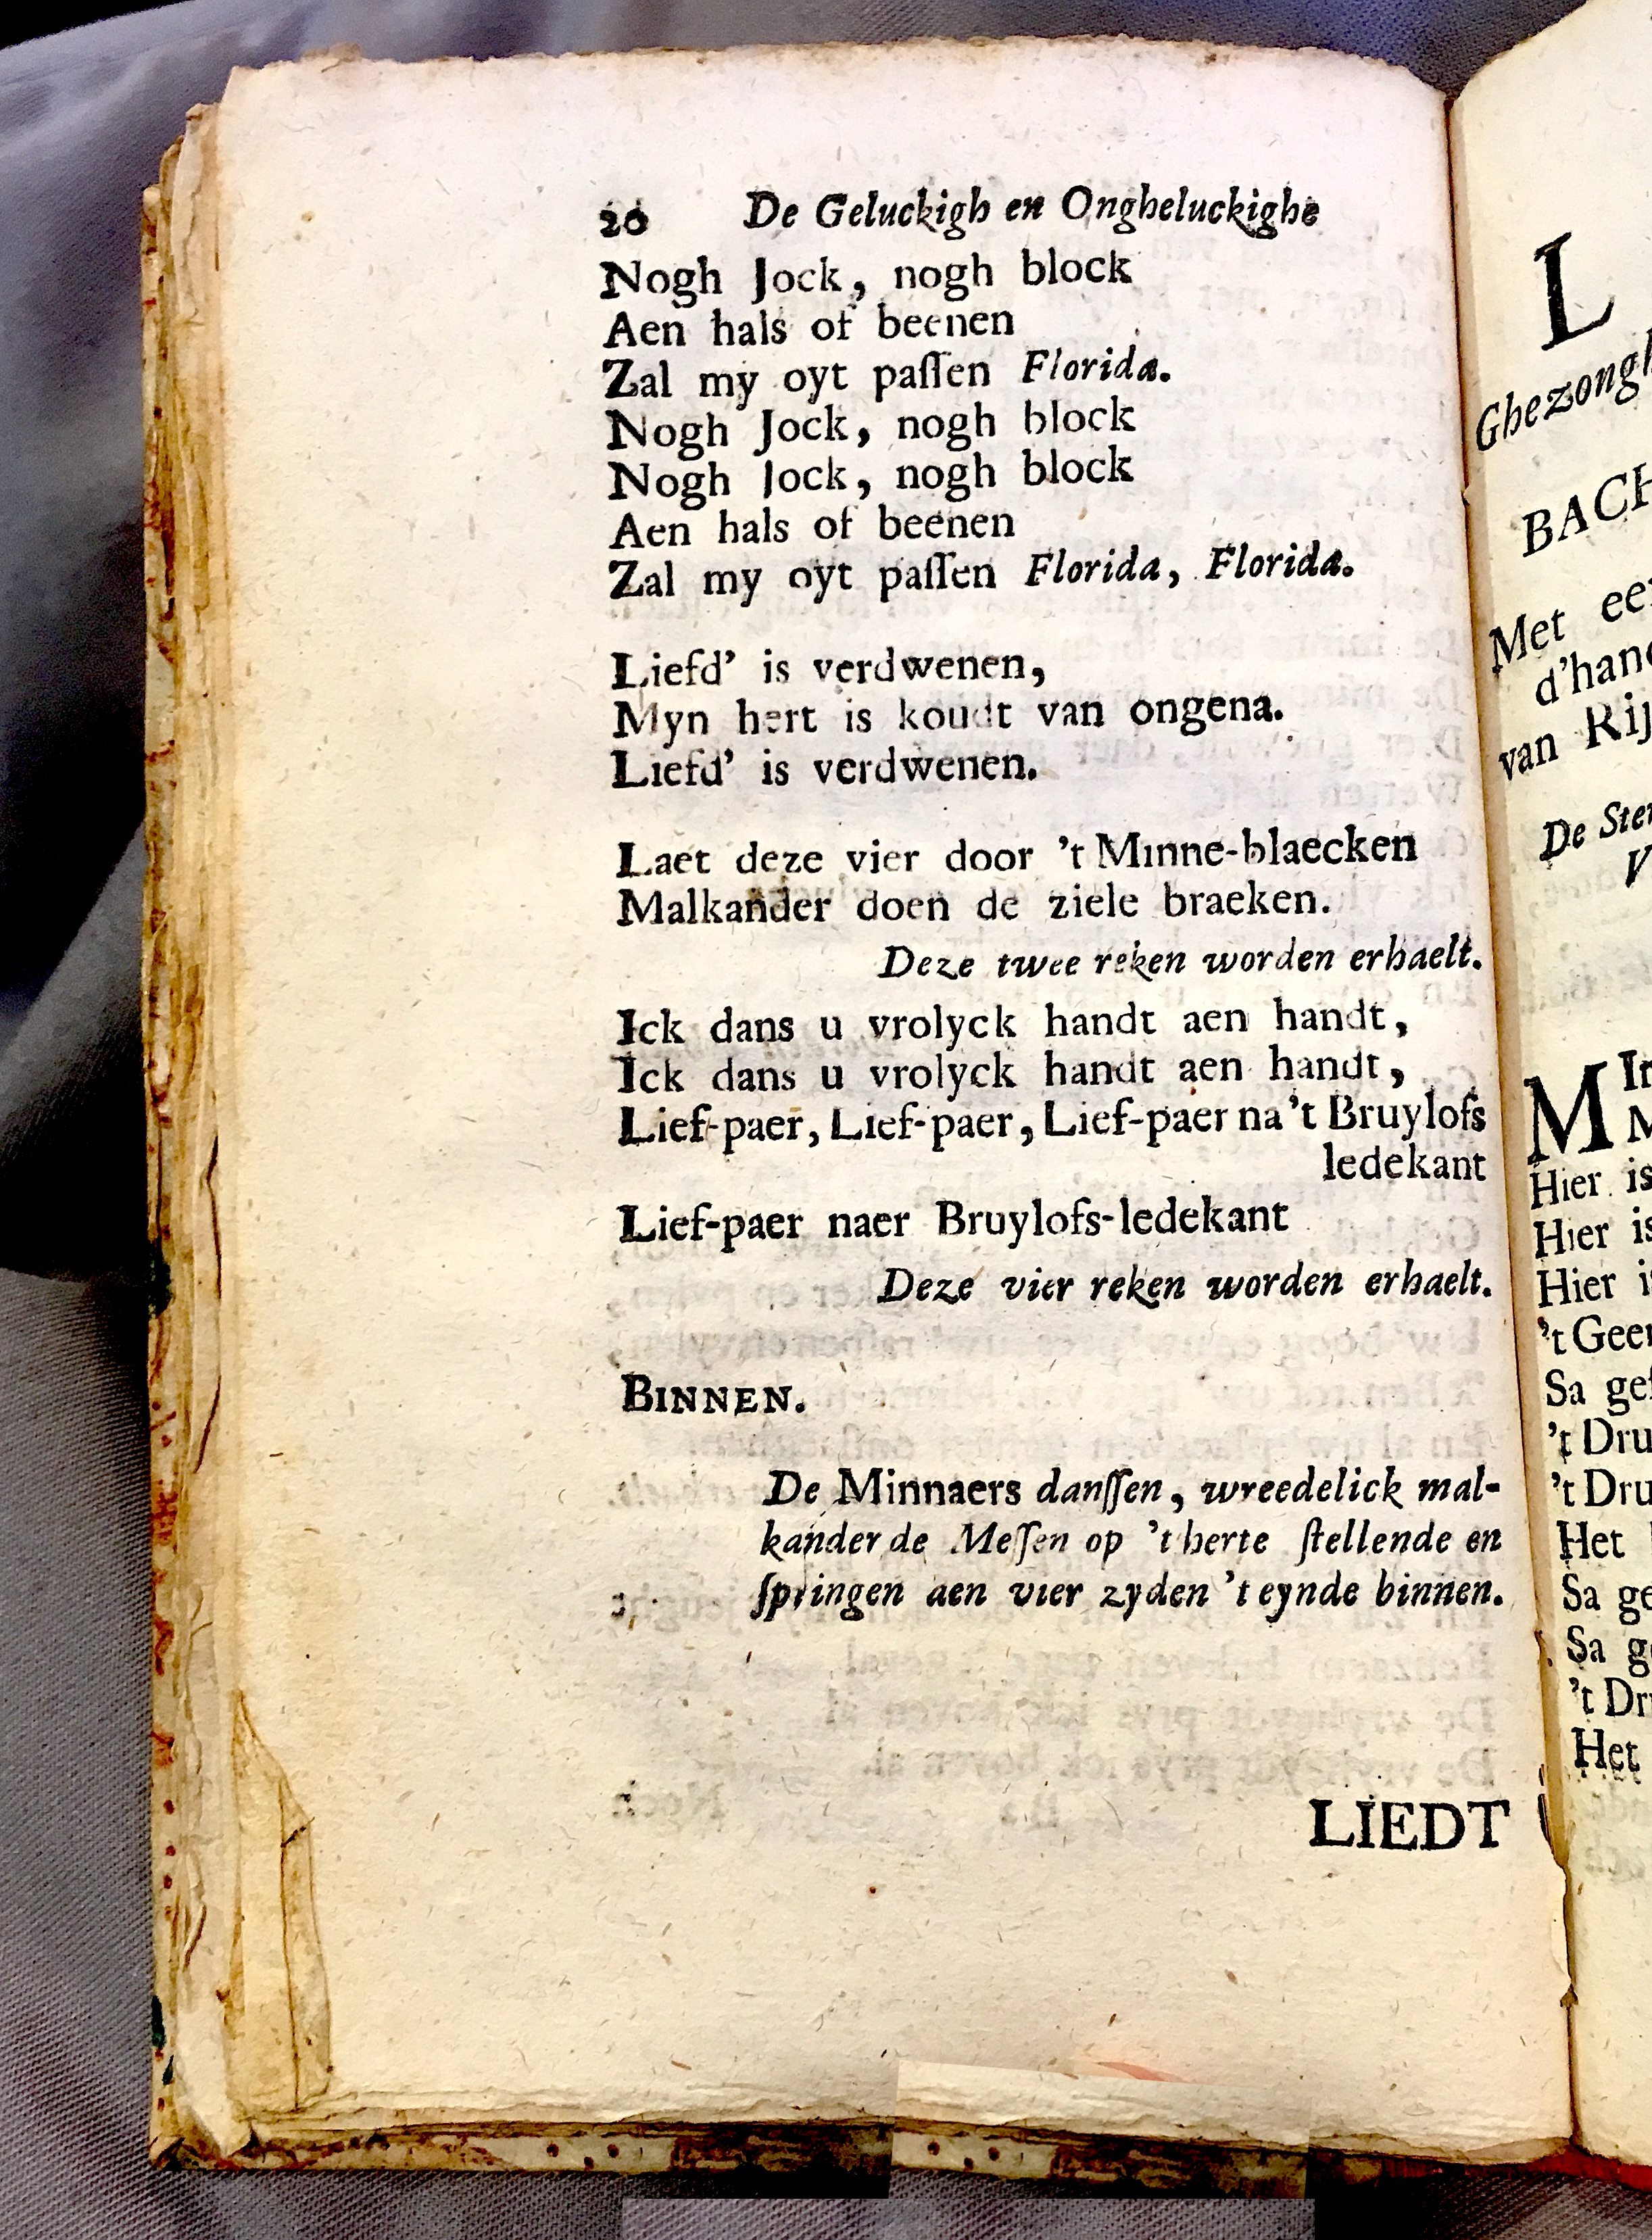 20 De Geluckigh en Ongheluckighe
Nogh Jock, nogh block
Aen hals of beenen
Zal my oyt passen Florida.
Nogh Jock, nogh block
Nogh Jock, nogh block
Aen hals of beenen
Zal my oyt passen Florida, Florida.
Liefd' is verdwenen,
Myn hert is koudt van ongena.
Liefd' is verdwenen.
Laet deze vier door 't Minne-blaecken
Malkander doen de ziele braeken.
Deze twee reken worden erhaelt.
Ick dans u vrolyck handt aen handt,
Ick dans u vrolyck handt aen handt,
Lief-paer, Lief-paer, Lief-paer na 't Bruylofs
ledekant
Lief-paer naer Bruylofs-ledekant
Deze vier reken worden erhaelt.
BINNEN.
De Minnaers danssen, wreedelick mal-
kander de Messen op 't herte stellende en
springen aen vier zyden 't eynde binnen.
LIEDT
L
Ghezongh
BACH
Met ee
d'hand
van Rij
De Ste
V
M
Hier is
Hier is
Hier i
't Geen
Sa ge
't Dru
't Dru
Het
Sa ge
Sa g
't Dr
Het